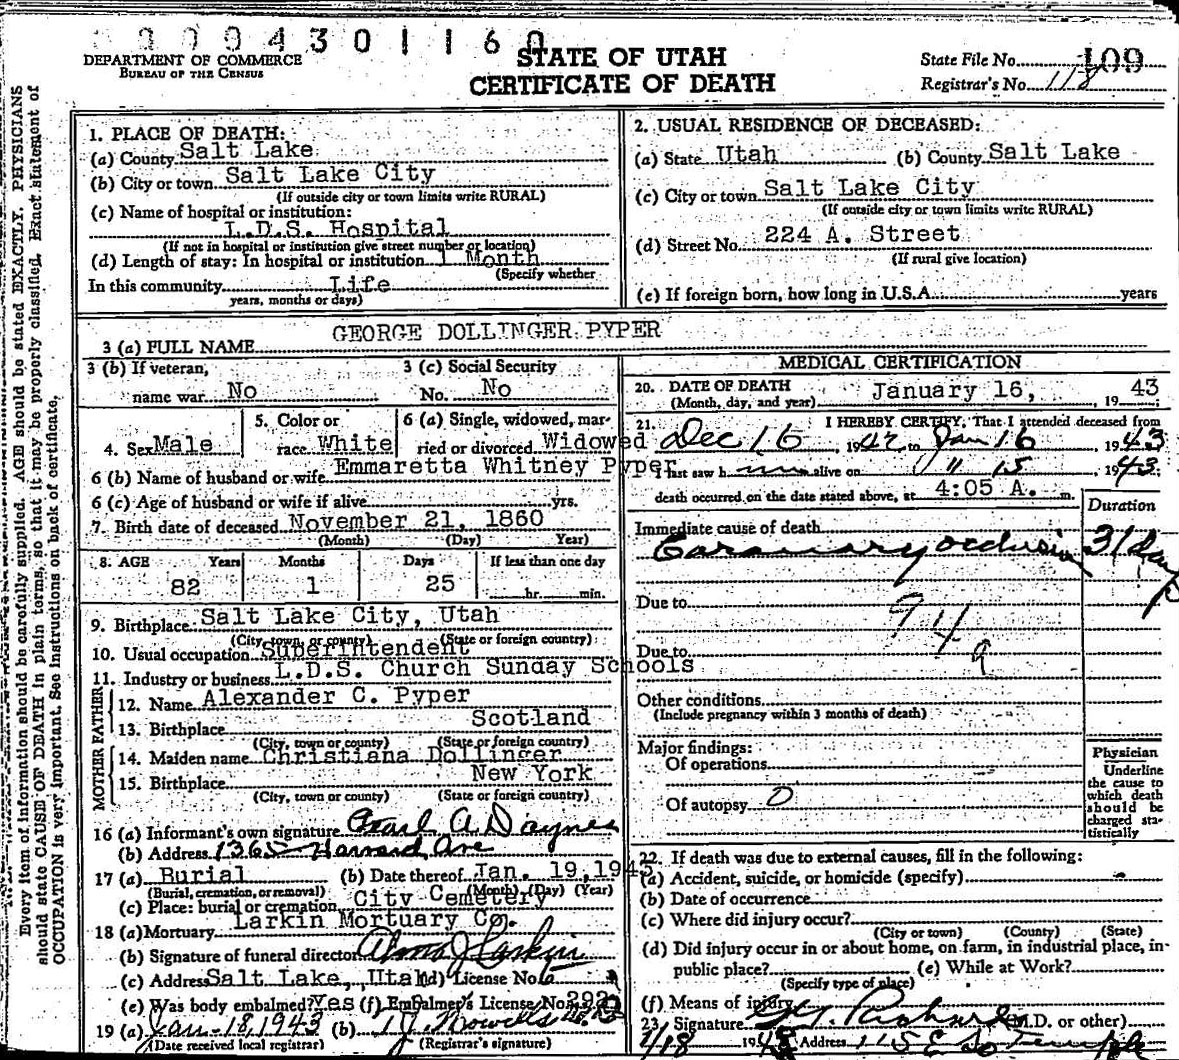 0004301160
DEPARTMENT OF COMMERCE
BUREAU OF THE CENSUS
STATE OF UTAH
CERTIFICATE OF DEATH
State File No. 109
Registrar's No. 118
Every item of information should be carefully supplied. AGE should be stated EXACTLY. PHYSICIANS
should state CAUSE OF DEATH in plain terms, so that it may be properly classified. Exact statement of
OCCUPATION is very important. See instructions on back of certificate.
1. PLACE OF DEATH:
(a) County Salt Lake
(b) City or town Salt Lake City
(If outside city or town limits write RURAL)
(c) Name of hospital or institution:
L.D.S. Hospital
(If not in hospital or institution give street number or location)
(d) Length of stay: In hospital or institution 1 Month
(Specify whether
In this community Life
years, months or days)
2. USUAL RESIDENCE OF DECEASED:
(a) State Utah (b) County Salt Lake
(c) City or town Salt Lake City
(If outside city or town limits write RURAL)
(d) Street No. 224 A. Street
(If rural give location)
(e) If foreign born, how long in U.S.A. years
3 (a) FULL NAME GEORGE DOLLINGER PYPER
3 (b) If veteran,
name war No
3 (c) Social Security
No. No
4. Sex Male
5. Color or
race White
6 (a) Single, widowed, mar-
ried or divorced Widowed
6 (b) Name of husband or wife Emmaretta Whitney Pyper
6 (c) Age of husband or wife if alive yrs.
7. Birth date of deceased November 21, 1860
(Month) (Day) Year)
8. AGE Years Months Days If less than one day
82 1 25 hr. min.
9. Birthplace Salt Lake City, Utah
(City, town, or county) (State or foreign country)
10. Usual occupation Superintendent
11. Industry or business L.D.S. Church Sunday Schools
MOTHER FATHER
12. Name Alexander C. Pyper
13. Birthplace Scotland
(City, town or county) (State or foreign country)
14. Maiden name Christiana Dollinger
15. Birthplace New York
(City, town or county) (State or foreign country)
16 (a) Informant's own signature A Daynes
(b) Address 1365 Harvard Ave
17 (a) Burial (b) Date thereof Jan. 19, 1943
(Burial, cremation, or removal) (Month) (Day) (Year)
(c) Place: burial or cremation City Cemetery
18 (a) Mortuary Larkin Mortuary Co.
(b) Signature of funeral director Larkin
(c) Address Salt Lake, Utah (d) License No. 6
(e) Was body embalmed? Yes (f) Embalmer's License No. 292
19 (a) Jan-18, 1943 (b)
(Date received local registrar) (Registrar's signature)
MEDICAL CERTIFICATION
20. DATE OF DEATH
(Month, day, and year) January 16, 19 43
21. I HEREBY CERTIFY, That I attended deceased from
Dec 16 1942 to Jan 16 1943
I last saw h im alive on 1943
death occurred on the date stated above, at 4:05 A. m.
Duration
Immediate cause of death
Coronary occlusion 31 days
Due to
Due to
Other conditions
(Include pregnancy within 3 months of death)
Major findings:
Of operations
Of autopsy 0
Physician
Underline
the cause to
which death
should be
charged sta-
tistically
22. If death was due to external causes, fill in the following:
(a) Accident, suicide, or homicide (specify)
(b) Date of occurrence
(c) Where did injury occur?
(City or town) (County) (State)
(d) Did injury occur in or about home, on farm, in industrial place, in-
public place? (e) While at Work?
(Specify type of place)
(f) Means of injury
23. Signature Richards (M.D. or other)
1/18 1943 Address 115 E So Temple